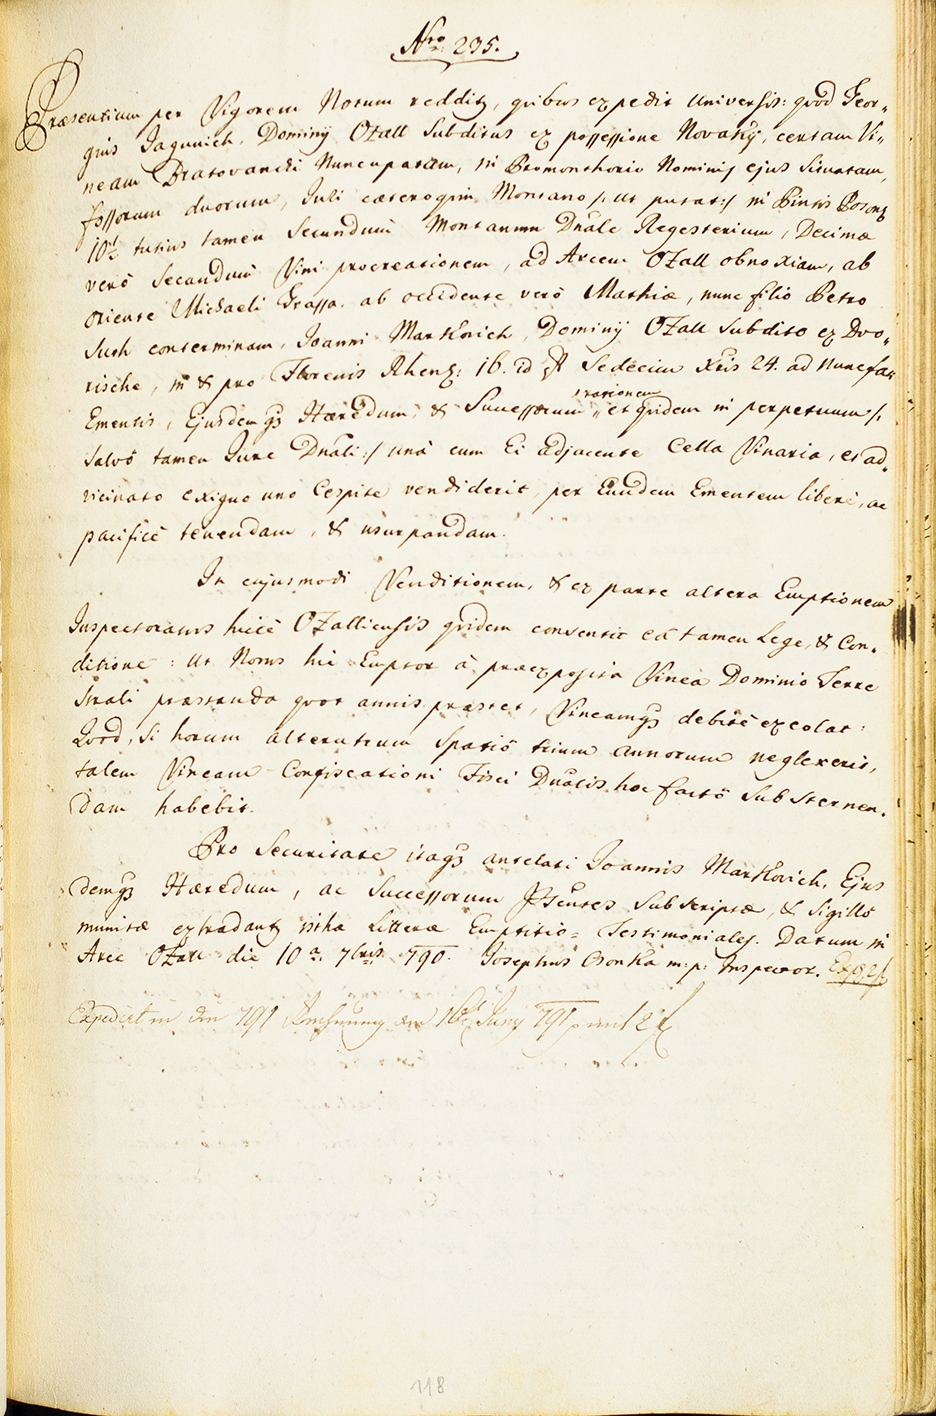 Nro 235.
Præsentium per Vigorem Notum redditz, quibus expedit Universis: quod Geor„
gius Jagunich, Dominÿ Ozall Subditus ex possessione Novaky, certam Vi„
neam Bratovanchi Nuncupatam, in Promonthorio Nominis ejus Situatam,
fossorum duorum, Juli cæteroqui Montano /: ut putat :/ in Pintis Posonz
10d tutius tamen Secundum Montanum Dnale Regesterium, Decimæ
verò Secundum Vini procreationem, ad Arcem Ozall obnoxiam, ab
oriente Michaeli Grassa. ab occidente verò Mathiæ, nunc filio Petro
Sush conterminam, Joanni Markovich, Dominÿ Ozall Subdito ex Dvo„
rische, in & pro Florenis Rhenz: 16. id st Sedecim Xris 24. ad Nunc fas
Ementis, Ejusdemqz Hæredum, & Successorum „rationem„ et quidem in perpetuum /:
Salvô tamen Jure Dnali :/ unà cum Ei adjacente Cella Vinaria, et ad„
vicinato exiguo uno Cespite vendiderit per Eundem Ementem liberè, ac
pacificè tenendam, & usurpandam.
In cujusmodi Venditionem, & ex parte altera Emptionem
Inspectoratus hicce Ozalliensis quidem consentit eâ tamen Lege, & Con„
ditione: Ut Novus hic Emptor à præexposita Vinea Dominio Terre
strali præstanda quot annis præstet, Vineamqz debitè excolat:
Quod, Si horum alterutrum Spatiô trium annorum neglexerit,
talem Vineam Confiscationi Fisci Dnalis hoc factô Substernen„
dam habebit.
Pro Securitate itaqz antelati Joannis Markovich, Ejus
demqz Hæredum, ac Successorum Pstentes Subscriptæ, & Sigillô
munitæ extradantz isthæ Litteræ Emptitio= Testimoniales. Datum in
Arce Ozall die 10a 7bris 790. Josephus Csonka m: p: Inspector. Exp. 2f
Expedirt in den 791 Rechnung den 16ten Juny 791 mit 2 f
118